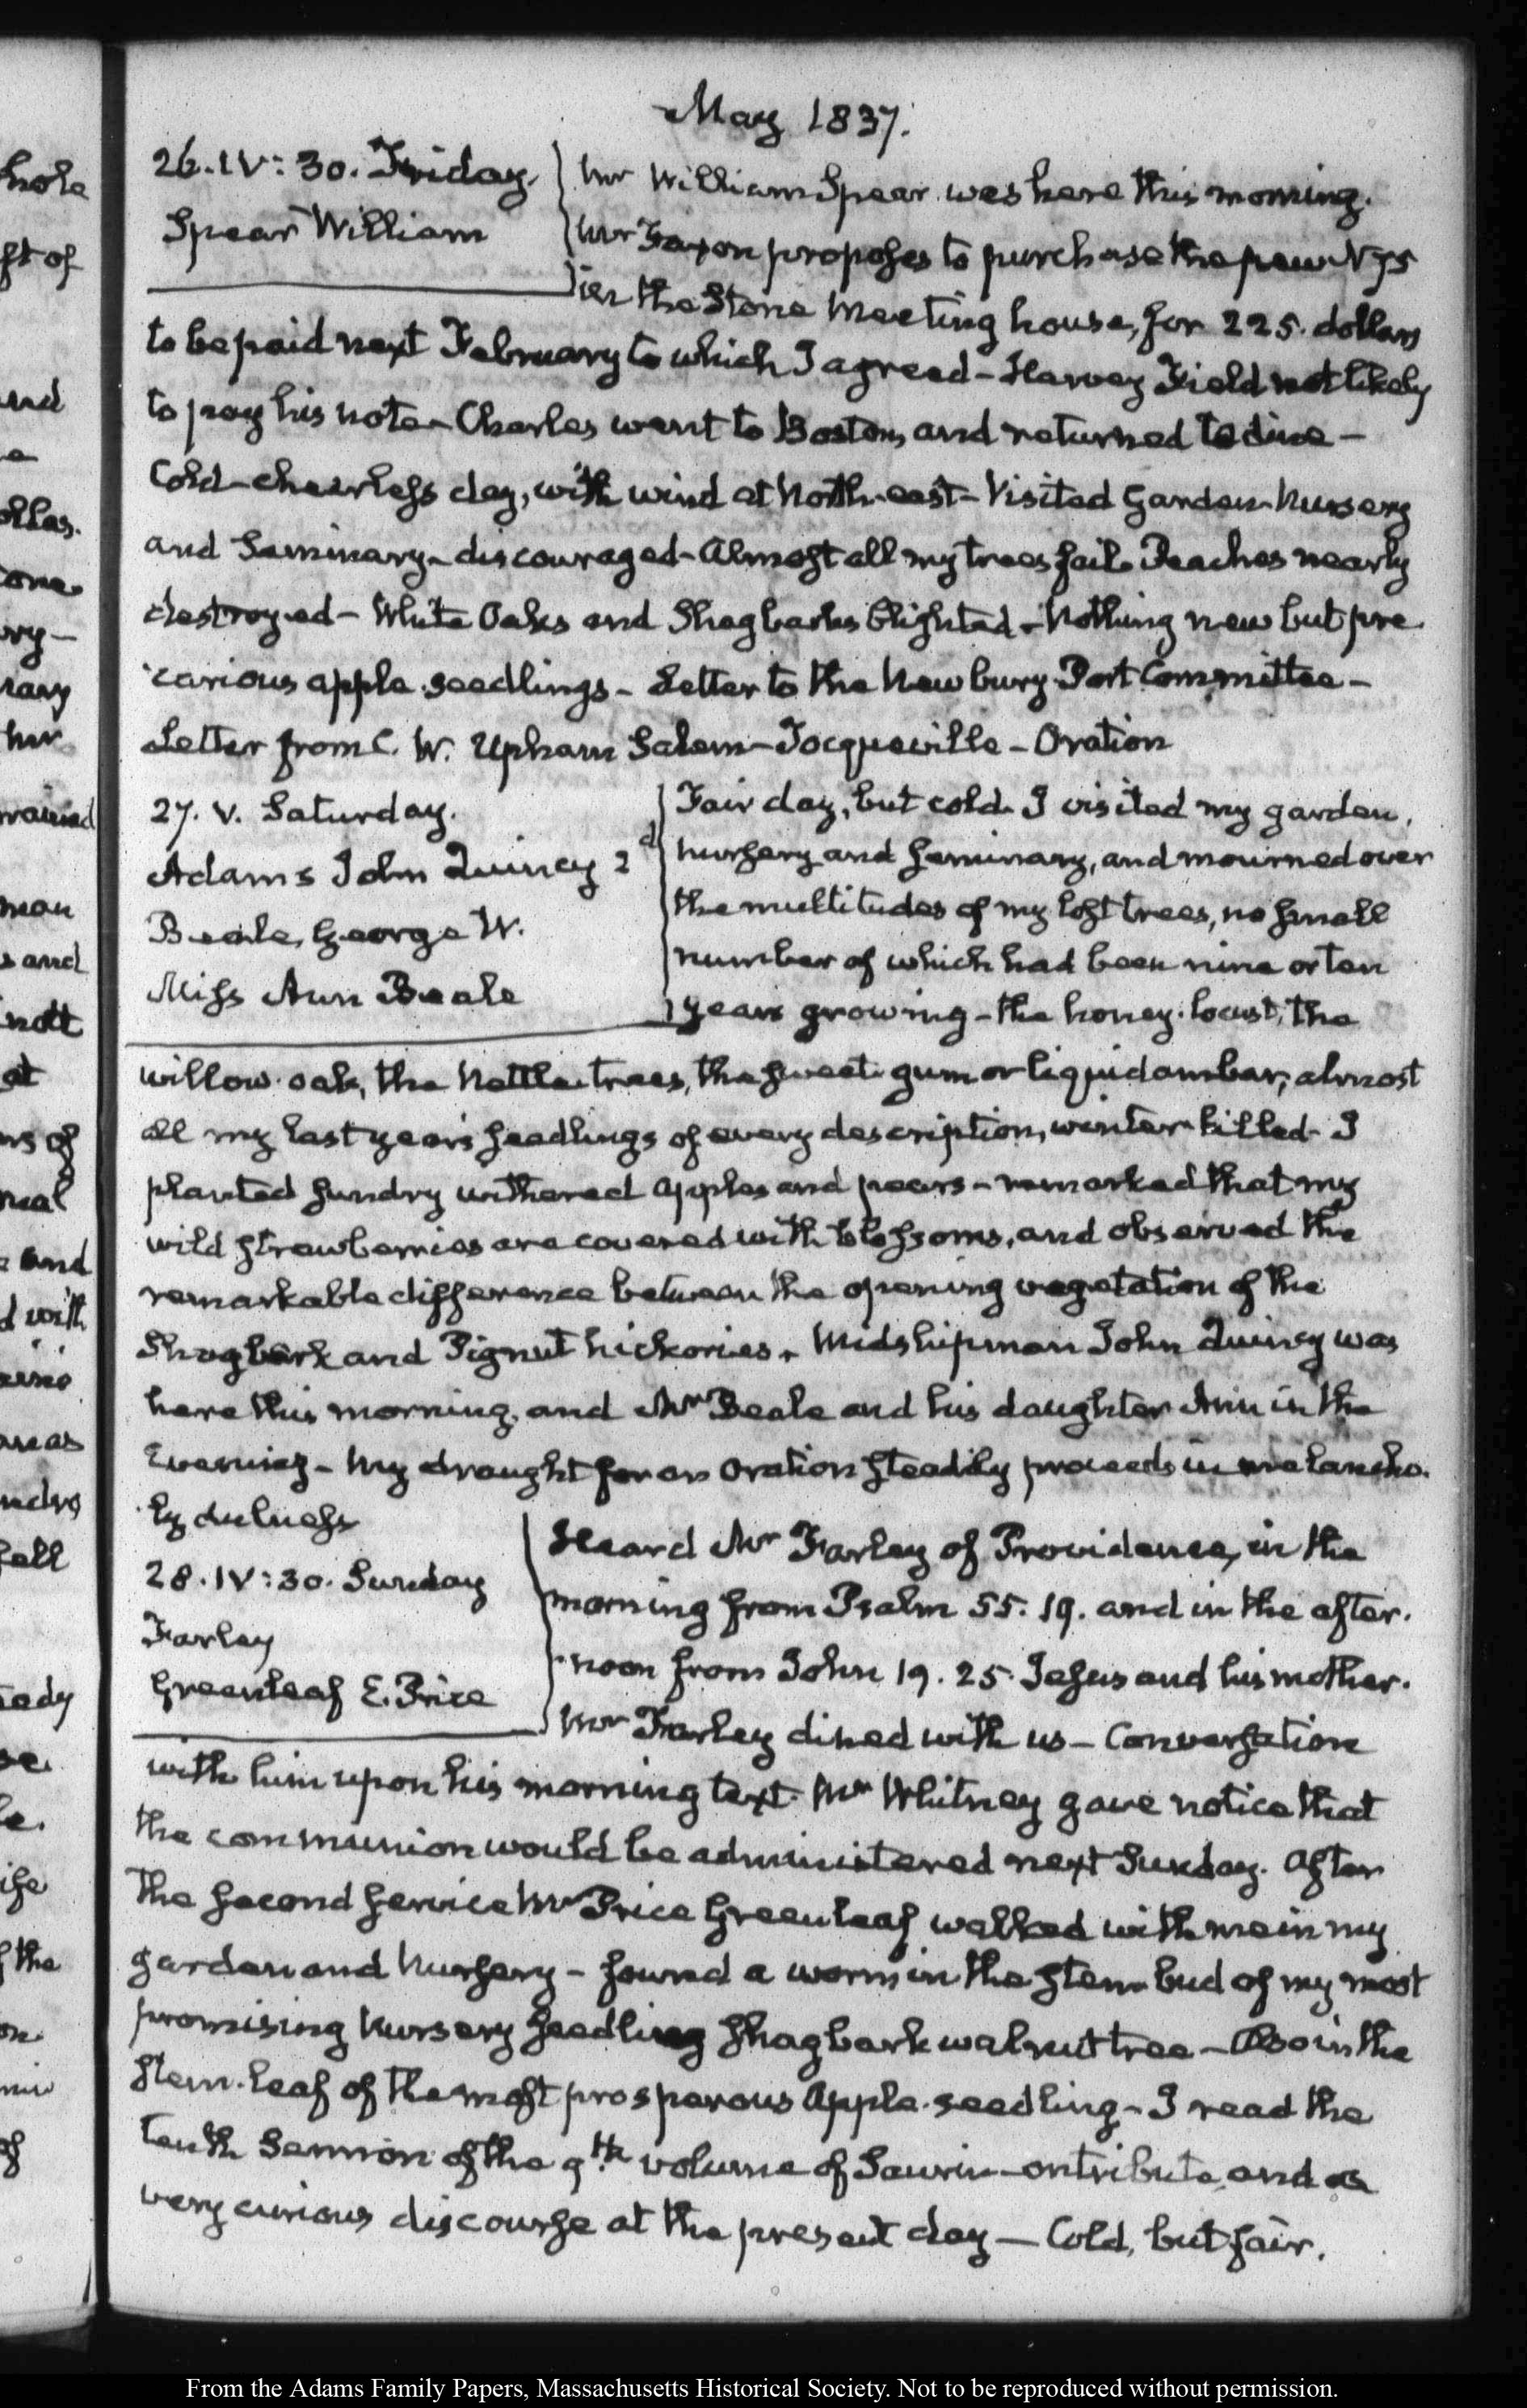 May 1837.
26. IV: 30. Friday.
Spear William
Mr William Spear was here this morning.
Mr Faxon proposes to purchase the pew N 75
in the Stone Meeting house, for 225. dollars
to be paid next February to which I agreed - Harvey Field not likely
to pay his note - Charles went to Boston, and returned to dine -
Cold cheerless day, with wind at North-east - Visited Garden Nursery
and Seminary - discouraged - Almost all my trees fail. Peaches nearly
destroyed - White Oaks and Shagbarks blighted - Nothing new but pre
carious apple seedlings - Letter to the Newbury Port Committee -
Letter from C. W. Upham Salem - Tocqueville - Oration
27. V. Saturday.
Adams John Quincy 2d
Beale, George W.
Miss Ann Beale
Fair day, but cold. I visited my garden,
nursery and seminary, and mourned over
the multitudes of my lost trees, no small
number of which had been nine or ten
years growing - the honey-locust, the
willow-oak, the Nettle-trees, the sweet-gum or liquidambar, almost
all my last year's seedlings of every description, winter-killed. I
planted sundry withered apples and pears - remarked that my
wild strawberries are covered with blossoms, and observed the
remarkable difference between the opening vegetation of the
Shagbark and Pignut hickories. Midshipman John Quincy was
here this morning, and Mr Beale and his daughter Ann in the
Evening - My draught for an Oration steadily proceeds in melancho-
ly dulness
28. IV: 30. Sunday
Farley
Greenleaf E. Price
Heard Mr Farley of Providence, in the
morning from Psalm 55. 19. and in the after-
noon from John 19. 25. Jesus and his mother.
Mr Farley dined with us - Conversation
with him upon his morning text. Mr Whitney gave notice that
the communion would be administered next Sunday. After
the second service Mr Price Greenleaf walked with me in my
garden and Nursery - found a worm in the stem-bud of my most
promising Nursery seedling shagbark walnut tree - Also in the
stem-leaf of the most prosperous Apple-seedling - I read the
tenth Sermon of the 9th volume of Saurin - on tribute, and a
very curious discourse at the present day - Cold, but fair.
From the Adams Family Papers, Massachusetts Historical Society. Not to be reproduced without permission.